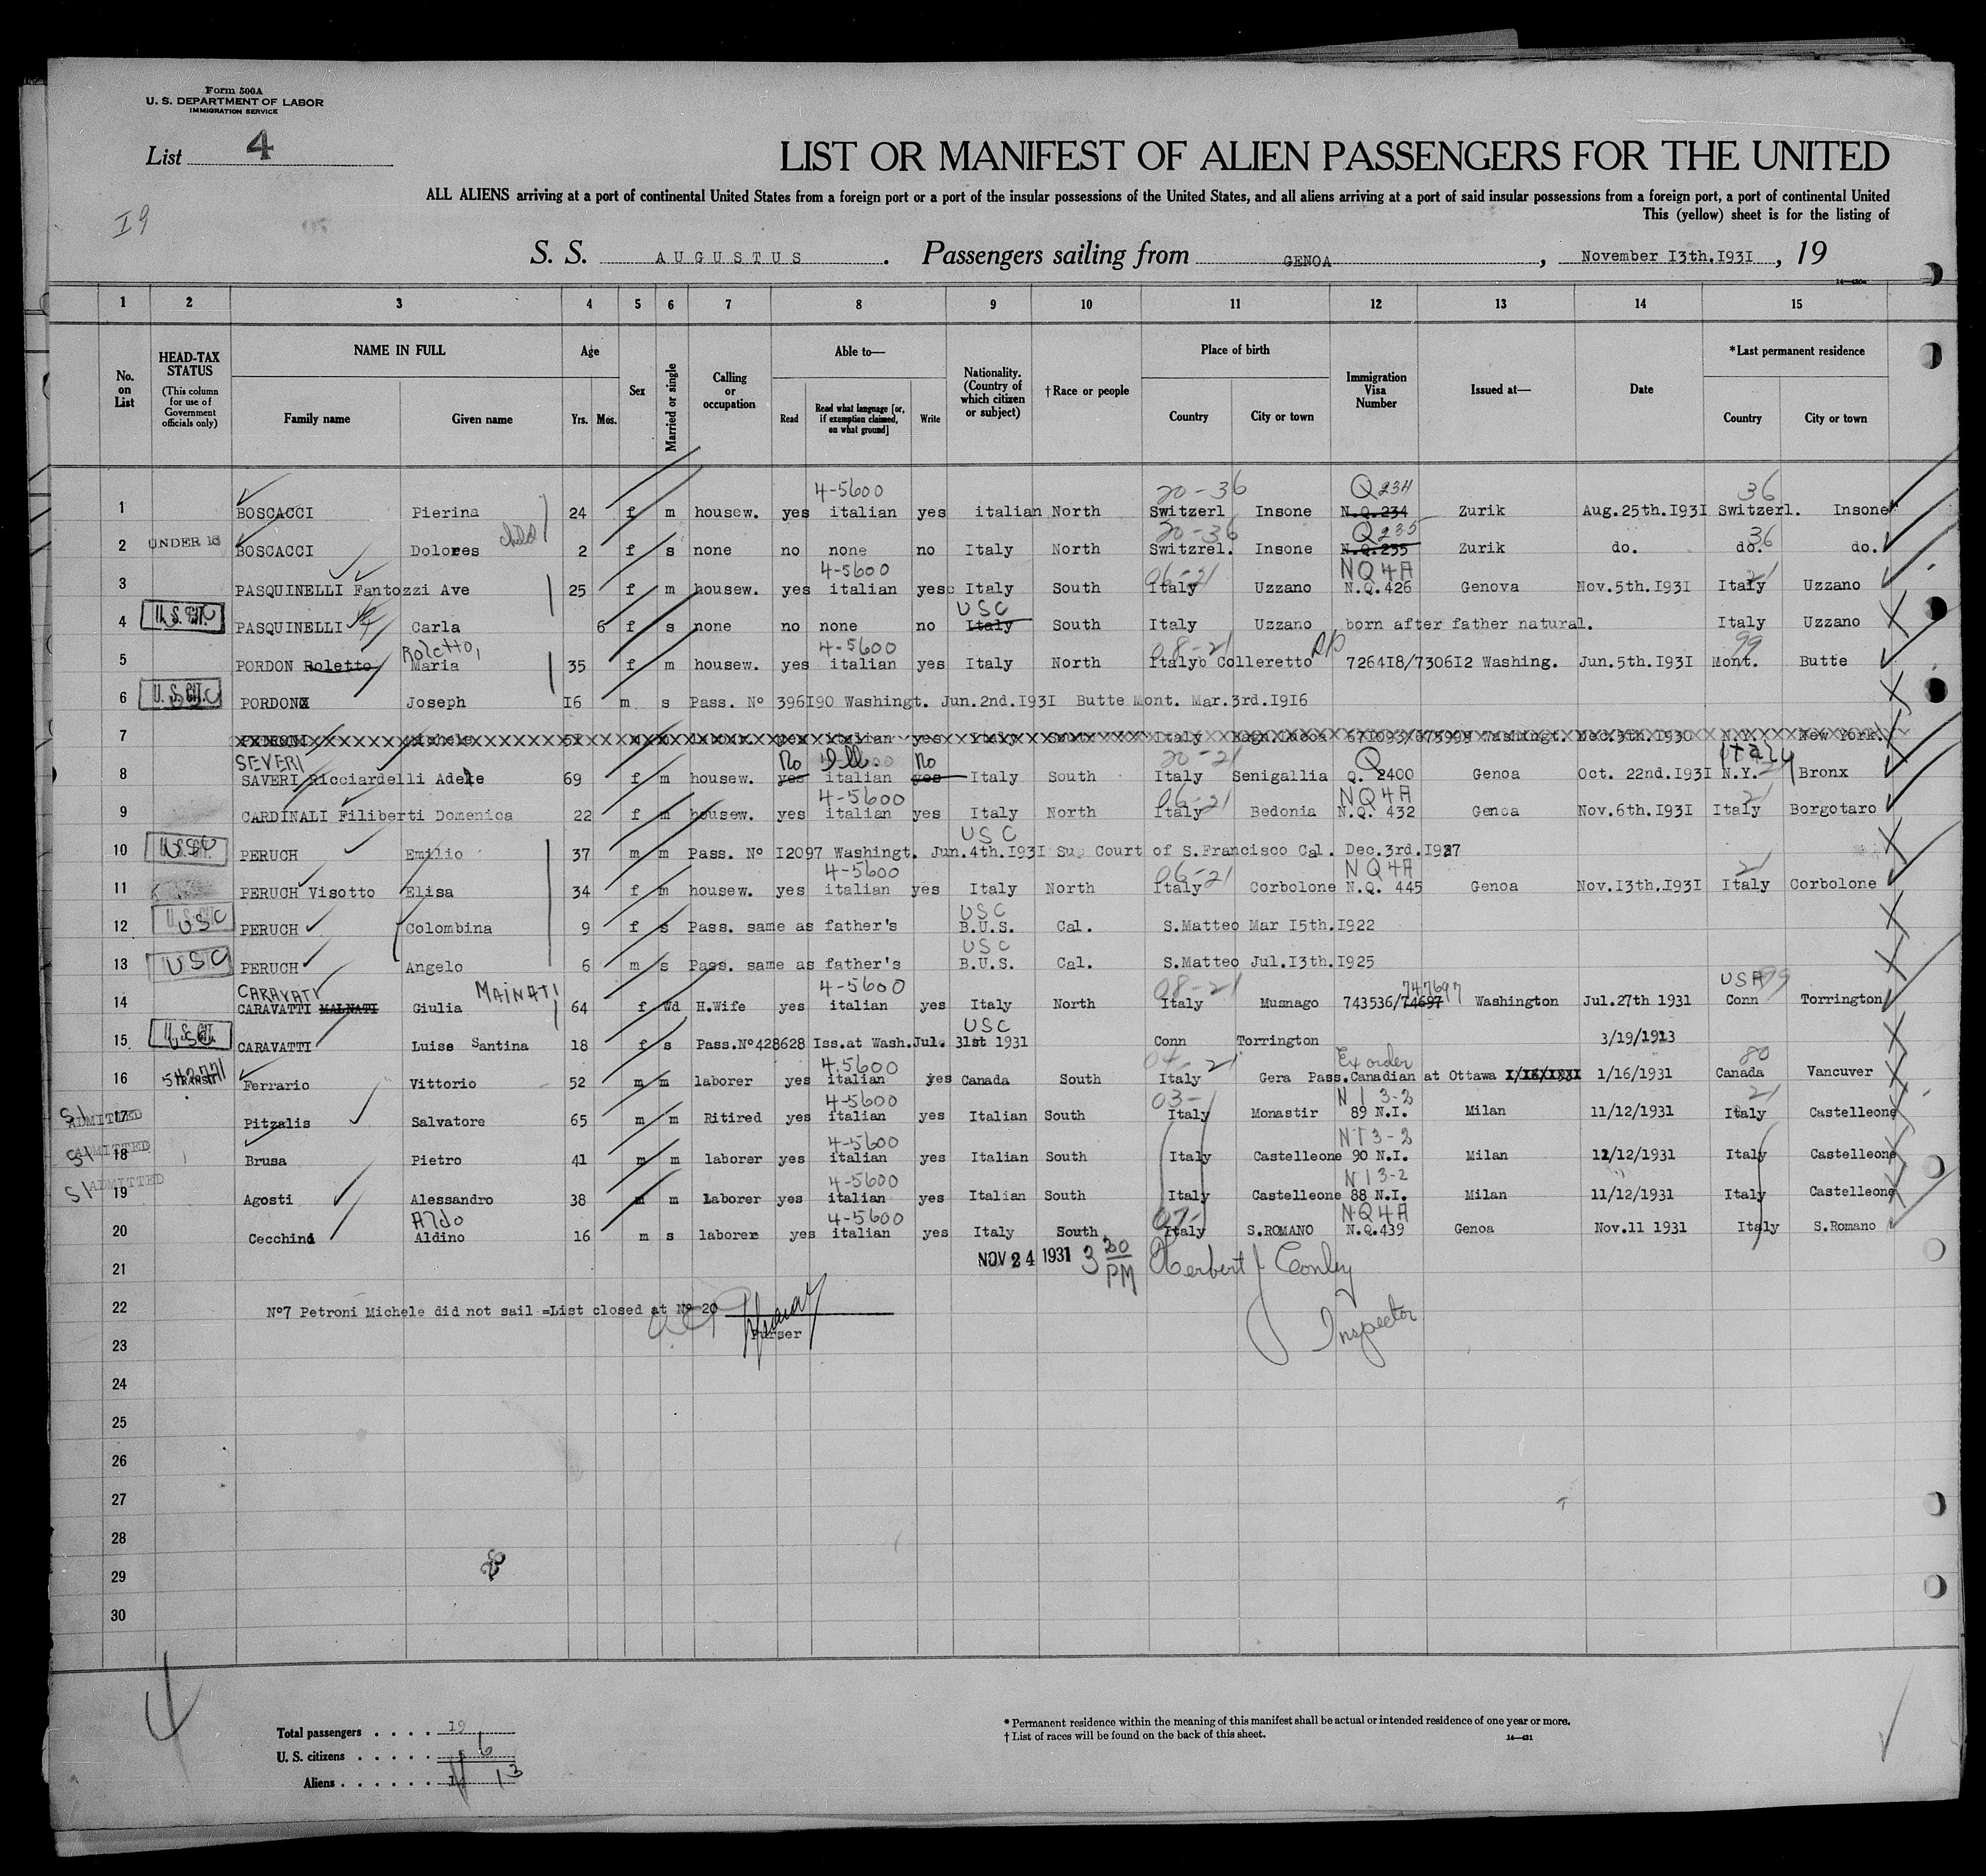 Form 500A
U. S. DEPARTMENT OF LABOR
IMMIGRATION SERVICE
List 4
LIST OR MANIFEST OF ALIEN PASSENGERS FOR THE UNITED
ALL ALIENS arriving at a port of continental United States from a foreign port or a port of the insular possessions of the United States, and all aliens arriving at a port of said insular possessions from a foreign port, a port of continental United
This (yellow) sheet is for the listing of
I9
S. S. AUGUSTUS. Passengers sailing from GENOA, November I3th.I93I, 19
1 2 3 4 5 6 7 8 9 10 11 12 13 14 15
No. on List
HEAD-TAX STATUS
(This column for use of Government officials only)
NAME IN FULL
Family name Given name
Age
Yrs. Mos.
Sex
Married or single
Calling or occupation
Able to—
Read
Read what language [or, if exemption claimed, on what ground]
Write
Nationality. (Country of which citizen or subject)
† Race or people
Place of birth
Country City or town
Immigration Visa Number
Issued at—
Date
*Last permanent residence
Country City or town
4-5600 20-36 Q234 36
1 BOSCACCI Pierina 24 f m housew. yes italian yes italian North Switzerl Insone N.Q.234 Zurik Aug.25th.I93I Switzerl. Insone
child 20-36 Q235 36
2 UNDER 16 BOSCACCI Dolores 2 f s none no none no Italy North Switzrel. Insone N.Q.235 Zurik do. do. do.
4-5600 06-21 NQ4A 21
3 PASQUINELLI Fantozzi Ave 25 f m housew. yes italian yes Italy South Italy Uzzano N.Q.426 Genova Nov.5th.I93I Italy Uzzano
USC
4 U.S. CIT. PASQUINELLI Carla 6 f s none no none no Italy South Italy Uzzano born after father natural. Italy Uzzano
Roletto, 4-5600 08-21 RP 99
5 PORDON Roletto Maria 35 f m housew. yes italian yes Italy North Italy Colleretto 7264I8/7306I2 Washing. Jun.5th.I93I Mont. Butte
6 U.S. CIT. PORDON Joseph I6 m s Pass. Nº 396I90 Washingt. Jun.2nd.I93I Butte Mont. Mar.3rd.I9I6
7 PETRONI Michele m italian yes Italy South Italy 671093/675998 Washingt. Dec.5th.I930 N.Y. New York.
SEVERI No No 20-21 Italy
8 SAVERI Ricciardelli Adele 69 f m housew. yes italian yes Italy South Italy Senigallia Q. 2400 Genoa Oct. 22nd.I93I N.Y. Bronx
4-5600 06-21 NQ4A 21
9 CARDINALI Filiberti Domenica 22 f m housew. yes italian yes Italy North Italy Bedonia N.Q. 432 Genoa Nov.6th.I93I Italy Borgotaro
USC
10 USC PERUCH Emilio 37 m m Pass. Nº I2097 Washingt. Jun.4th.I93I Sup Court of S.Francisco Cal. Dec.3rd.I927
4-5600 06-21 NQ4A 21
11 PERUCH Visotto Elisa 34 f m housew. yes italian yes Italy North Italy Corbolone N.Q. 445 Genoa Nov.I3th.I93I Italy Corbolone
USC
12 USC PERUCH Colombina 9 f s Pass. same as father's B.U.S. Cal. S.Matteo Mar I5th.I922
USC
13 USC PERUCH Angelo 6 m s Pass. same as father's B.U.S. Cal. S.Matteo Jul.I3th.I925
CARAVATI MAINATI 4-5600 08-21 747697 USA 99
14 CARAVATTI MALNATI Giulia 64 f Wd H.Wife yes italian yes Italy North Italy Musnago 743536/74697 Washington Jul.27th 1931 Conn Torrington
USC
15 U.S. CIT. CARAVATTI Luise Santina 18 f s Pass.Nº428628 Iss.at Wash.Jul. 31st 1931 Conn Torrington 3/19/1913
4.5600 04-21 Ex order 80
16 TRANSIT Ferrario Vittorio 52 m m laborer yes italian yes Canada South Italy Gera Pass.Canadian at Ottawa 1/16/1931 Canada Vancuver
4-5600 03- NI 3-2 21
SI ADMITTED 17 Pitzalis Salvatore 65 m m Ritired yes italian yes Italian South Italy Monastir 89 N.I. Milan 11/12/1931 Italy Castelleone
4-5600 NI 3-2
SI ADMITTED 18 Brusa Pietro 41 m m laborer yes italian yes Italian South Italy Castelleone 90 N.I. Milan 12/12/1931 Italy Castelleone
4-5600 NI 3-2
SI ADMITTED 19 Agosti Alessandro 38 m m laborer yes italian yes Italian South Italy Castelleone 88 N.I. Milan 11/12/1931 Italy Castelleone
Aldo 4-5600 07- NQ4A
20 Cecchini Aldino 16 m s laborer yes italian yes Italy South Italy S.ROMANO N.Q.439 Genoa Nov.11 1931 Italy S.Romano
21 NOV 24 1931 3 30 PM Herbert J Conley
22 Nº7 Petroni Michele did not sail =List closed at Nº 20
Purser
Inspector
23
24
25
26
27
28
29
30
Total passengers . . . . 19
U. S. citizens . . . . . 6
Aliens . . . . . . 13
* Permanent residence within the meaning of this manifest shall be actual or intended residence of one year or more.
† List of races will be found on the back of this sheet.
14—431